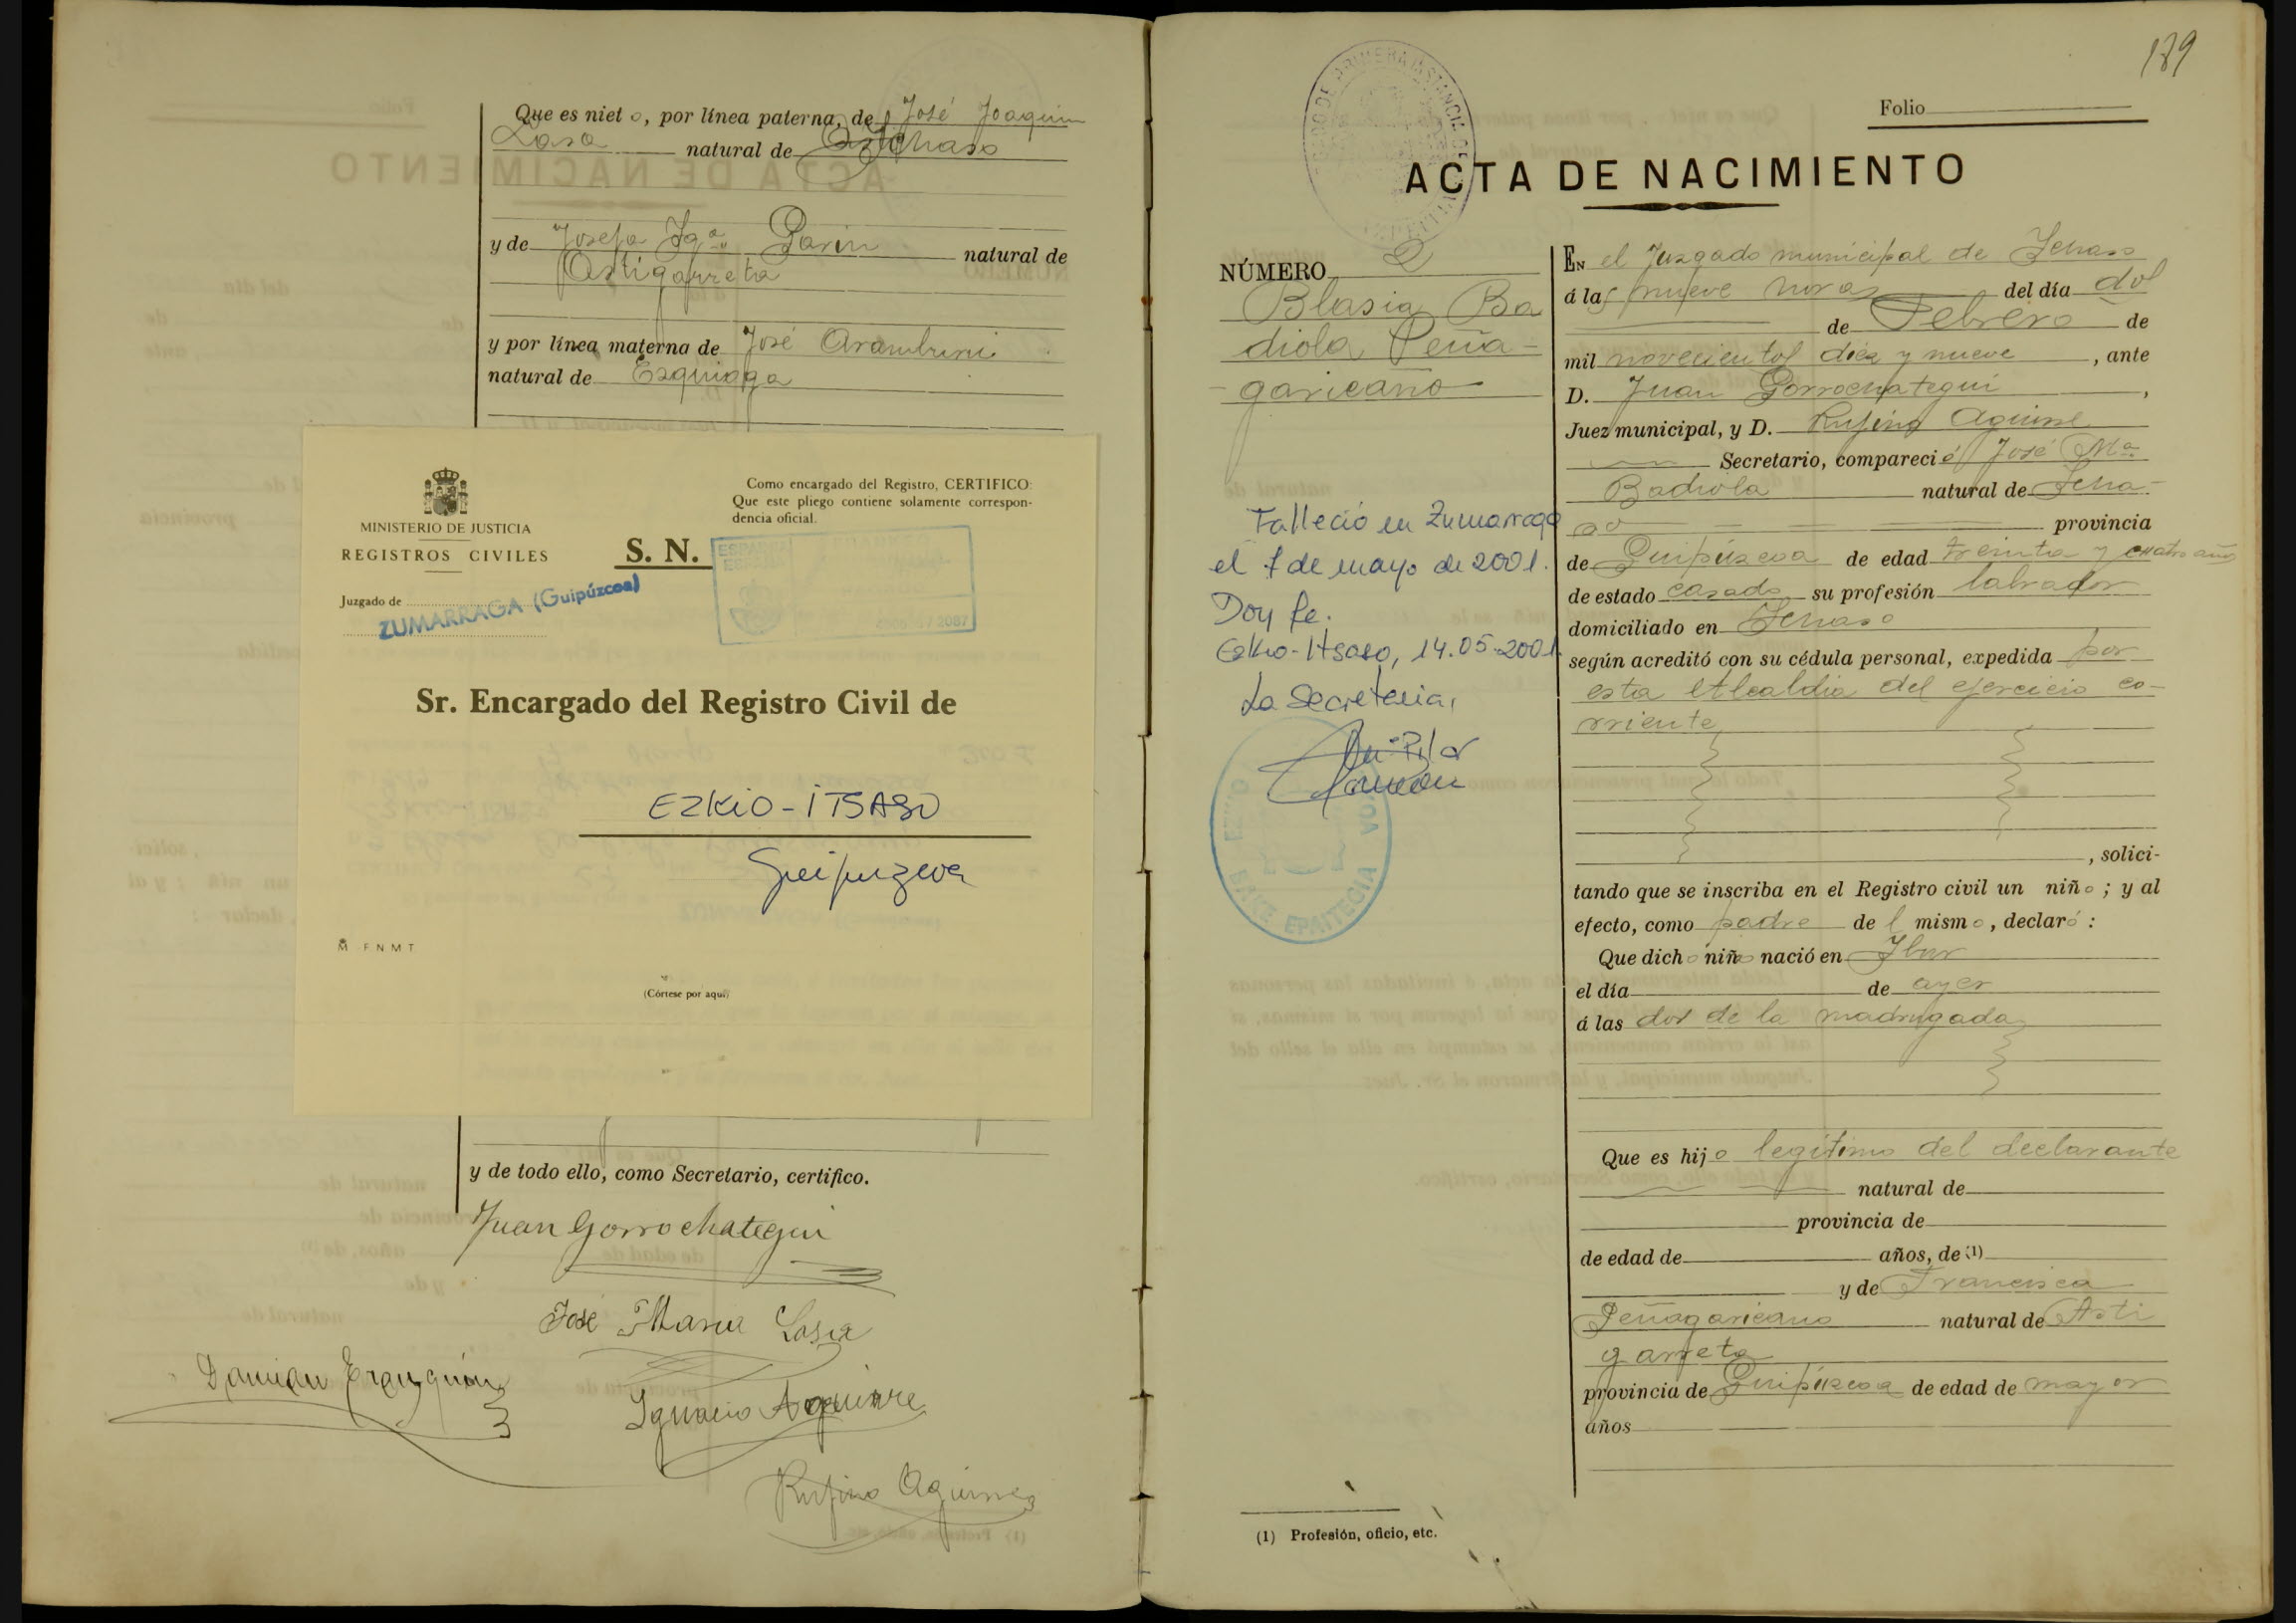 Que es niet o, por línea paterna, de José Joaquin
Lasa natural de Astchaso
y de Josefa Ig.ª Garin natural de
Astigarreta
y por línea materna de José Aramburu
natural de Ezquioga
MINISTERIO DE JUSTICIA
REGISTROS CIVILES
Juzgado de
ZUMARRAGA (Guipúzcoa)
S. N.
Como encargado del Registro, CERTIFICO:
Que este pliego contiene solamente correspon-
dencia oficial.
ESPAÑA
Sr. Encargado del Registro Civil de
EZKiO-iTSASO
Guipuzcoa
F N M T
(Córtese por aquí)
y de todo ello, como Secretario, certifico.
Juan Gorrochategui
José Maria Lasa
Damian
Ignacio Aguirre
Rufino Aguirre
189
Folio
ACTA DE NACIMIENTO
NÚMERO 2
Blasia Ba
diola Peña-
-garicano
Falleció en Zumarraga
el 7 de mayo de 2001.
Doy fe.
Ezkio-Itsaso, 14.05.2001
La Secretaria,
Mª Pilar
EPAITEGIA
En el Juzgado municipal de Ichaso
á las nueve horas del día dos
de Febrero de
mil novecientos diez y nueve, ante
D. Juan Gorrochategui,
Juez municipal, y D. Rufino Aguirre
Secretario, compareció José Mª
Badiola natural de Icha-
so provincia
de Guipúzcoa de edad treinta y cuatro años
de estado casado su profesión labrador
domiciliado en Ichaso
según acreditó con su cédula personal, expedida por
esta Alcaldia del ejercicio co-
rriente
, solici-
tando que se inscriba en el Registro civil un niño; y al
efecto, como padre del mismo, declaró:
Que dicho niño nació en Ibar
el día de ayer
á las dos de la madrugada
Que es hijo legítimo del declarante
natural de
provincia de
de edad de años, de (1)
y de Francisca
Peñagaricano natural de Asti
garreta
provincia de Guipúzcoa de edad de mayor
años
(1) Profesión, oficio, etc.